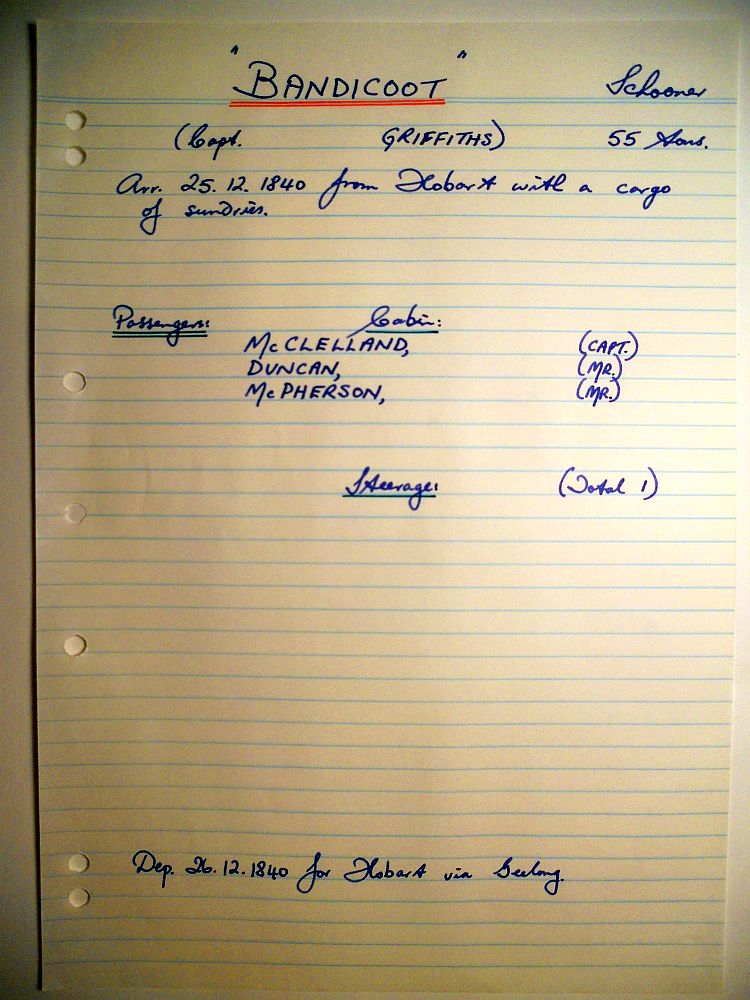 "BANDICOOT" Schooner
(Capt. GRIFFITHS) 55 tons.
Arr. 25.12.1840 from Hobart with a cargo
of sundries.
Passengers: Cabin:
McCLELLAND, (CAPT.)
DUNCAN, (MR.)
McPHERSON, (MR.)
Steerage: (Total 1)
Dep. 26.12.1840 for Hobart via Geelong.